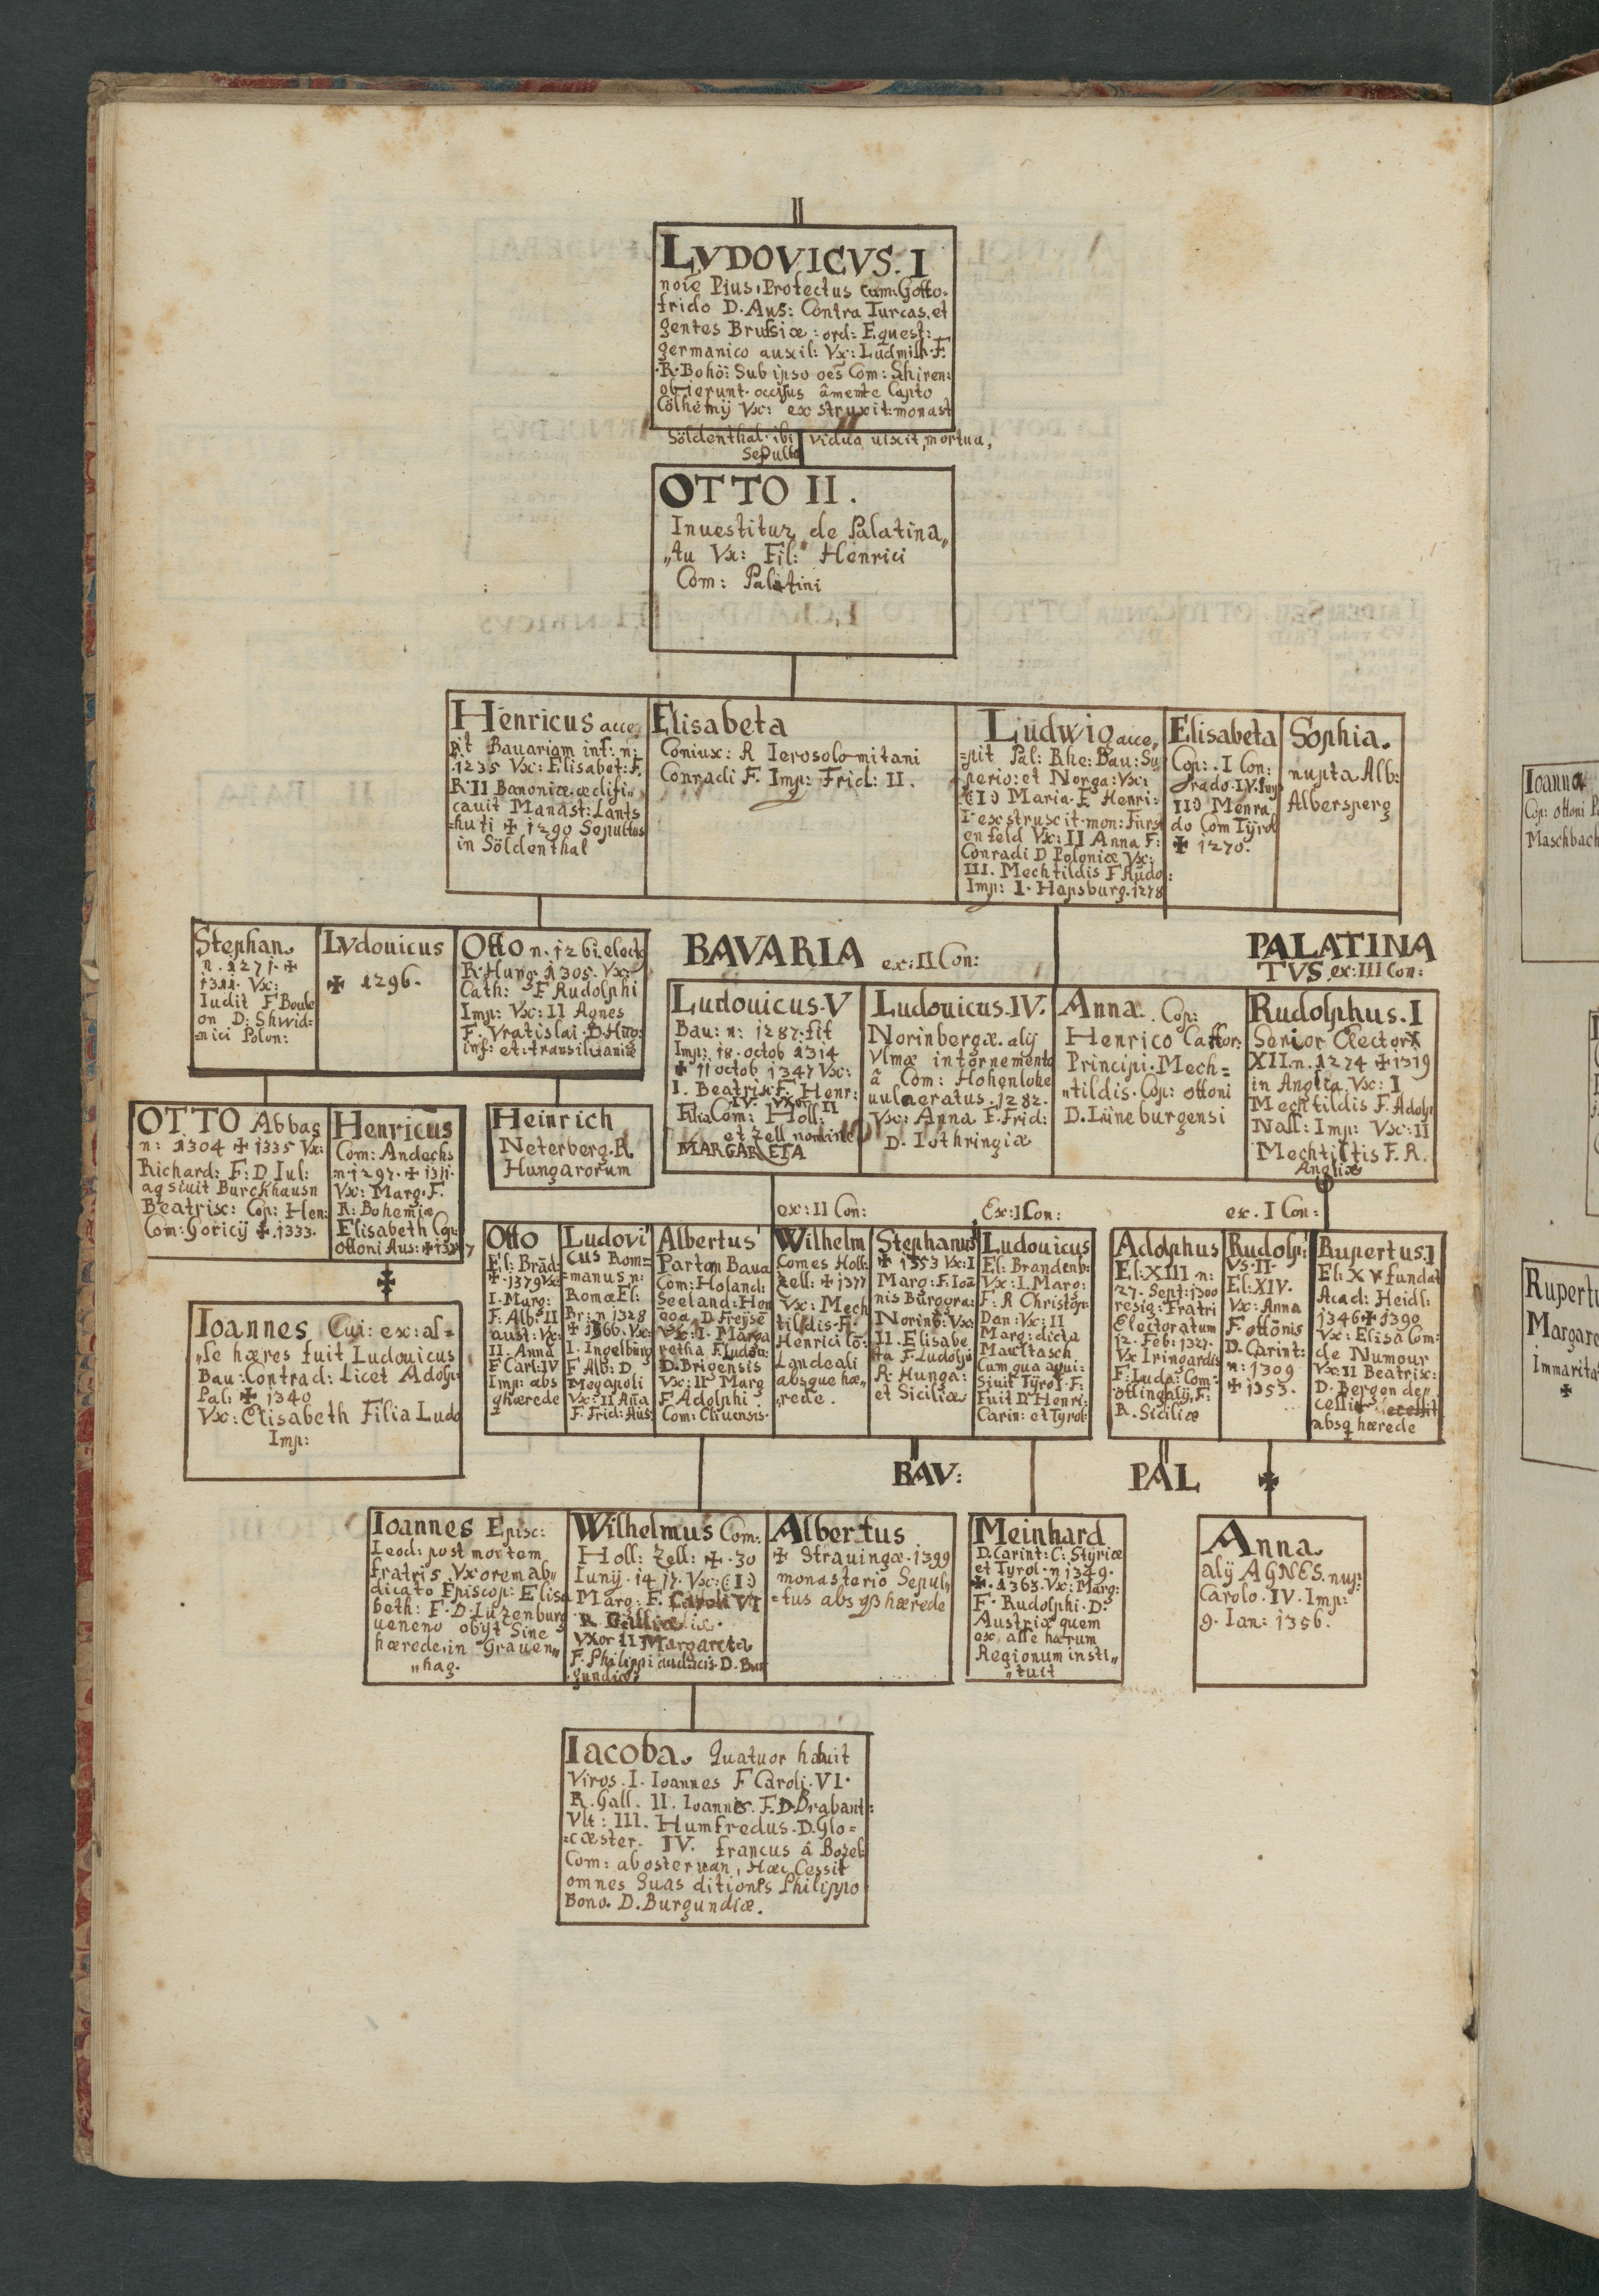 LVDOVICVS. I
noie Pius, Protectus cum: Gotto-
frido D. Aus: Contra Turcas, et
gentes Brussiæ: ord: Equest:
germanico auxil: Vx: Ludmill. F.
R. Bohö: Sub ipso oes Com: Shiren:
obierunt. occisus âmente Capto
Cölhemij Vx: exstruxit: monast
Söldenthal. ibi vidua uixit, mortua,
Sepulta
OTTO II.
Inuestitur de Palatina„
„tu Vx: Fil: Henrici
Com: Palatini
Henricus acce„
pit Bauariam inf: n:
1235 Vx: Elisabet: F.
R. II Banoniæ. ædifi„
cauit Manast: Lants
=huti ✠ 1290 Sepultus
in Söldenthal
Elisabeta
Coniux: R Ierosolomitani
Conradi F. Imp: Frid: II.
Ludwig acce„
=pit Pal: Rhe: Bau: Su
perio: et Norga: Vx:
(I) Maria. F. Henri:
I. exstruxit. mon: Fürst
enfeld Vx: II Anna F:
Conradi D Poloniæ Vx:
III. Mechtildis F Rudo:
Imp: I. Hapsburg. 1278
Elisabeta
Cop: I Con:
rado. IV. Imp
II) Menra
do Com Tÿrol
✠ 1270.
Sophia.
nupta Alb:
Albersperg
Stephan.
n. 1271. ✠
1311. Vx:
Iudit F Boule
on D: Shwid=
=nici Polon:
Lvdouicus
✠ 1296.
Otto n. 1261. elect
R. Hung 1305. Vx:
Cath: F Rudolphi
Imp: Vx: II Agnes
F. Vratislai. D. Hugo:
inf: et: transiluaniæ
BAVARIA ex: II Con:
PALATINA
TVS ex: III Con:
Ludouicus. V
Bau: n: 1287. fit
Imp: 18. octob 1314
✠ 11 octob 1347 Vx:
I. Beatrix F. Henr:
IV. Vxor II
Filia Com: Holl:
et Zell nomine
MARGARETA
Ludouicus. IV.
Norinbergæ. alij
Vlmæ intornemento
â Com: Hohenlohe
uulneratus. 1282.
Vx: Anna F. Frid:
D. Lothringiæ
Anna. Cop:
Henrico Cattor:
Principi. Mech=
„tildis. Cop: ottoni
D. Lüneburgensi
Rudolphus. I
Senior Elector
XII. n. 1274 ✠ 1319
in Anglia Vx: I
Mechtildis F. Adolp
Nall: Imp: Vx: II
Mechtiltis F. R.
Angliæ
OTTO Abbas
n: 1304 ✠ 1335 Vx:
Richard: F: D Iul:
agsiuit Burckhausn
Beatrisc: Cop: Hen:
Com: Goricij ✠. 1333.
Henricus
Com: Andechs
n. 1297. ✠ 1311.
Vx: Marg. F.
R: Bohemiæ
Elisabeth Cop:
ottoni Aus:
Heinrich
Neterberg. R.
Hungarorum
ex: II Con:
Ex: I Con:
ex. I Con:
Otto
El: Bräd:
✠. 1379 Vx:
I. Marg:
F: Alb: II
aust: Vx:
II. Anna
F Carl: IV
Imp: abs
hærede
Ludovi
cus Rom=
=manus n:
Romæ El:
Br: n 1328
✠ 1366. Vx:
I. Ingelburg
F Alb: D.
Megapoli
Vx: II Aña
F. Frid: Aus
Albertus
Partem Baua
Com: Holand:
Seeland: Hen
D. Freÿse
Vx: I. Marga
retha F. Ludou:
D. Brigensis
Vx: II Marg
F Adolphi
Com: Cliuensis.
Wilhelm
Comes Holl:
Zell: ✠ 1377
Vx: Mech
tildis. F.
Henrici Co:
Landeali
absque hæ„
„rede.
Stephanus
✠ 1353 Vx: I
Marg: F. Ioa
nis Burggra:
Norinb: Vx:
II. Elisabe
ta F. Ludolp
R: Hunga:
et Siciliæ
Ludouicus
El: Brandenb:
Vx: I. Marg:
F: R Christop:
Dan: Vx: II
Marg: dicta
Maultasch
Cum qua aqui:
siuit Tÿrol F:
Fuit D Henri:
Carin: et Tyrol:
Adolphus
El: XIII n:
27. Sept: 1300
resig: Fratri
Electoratum
12. Feb: 1327.
Vx Iringardis
F: Luda: Com:
ottingalij, F:
R. Siciliæ
Rudolp:
VS. II.
El: XIV.
Vx: Anna
F. ottonis
D. Carint:
n: 1309
✠ 1353.
Rupertus. I
El: XV fundat
Acad: Heidl:
1346 ✠ 1390
Vx: Elisa Com:
de Numour
Vx: II Beatrix:
D. Bergen de„
absq hærede
Ioannes Cui: ex: al=
„se hæres fuit Ludouicus
Bau: Contrad: Licet Adolp:
Pal: ✠ 1340
Vx: Elisabeth Filia Ludo
Imp:
BAV:
PAL
Ioannes Episc:
Leod: post mortem
fratris Vxorem ab„
dicato Episcop: Elisa
beth: F. D. Luzenburg
ueneno obijt Sine
hærede, in Grauen„
„hag.
Wilhelmus Com:
Holl: Zell: ✠. 30
Iunij. 1417. Vx: (I)
Marg: F. Caroli VI
R. Galliæ
Vxor II Margareta
F. Philippi audacis. D. Bur
gundiæ
Albertus
✠ Strauingæ. 1399
monasterio Sepul„
=tus absqß hærede
Meinhard
D. Carint: C: Styriæ
et Tyrol. n 1349.
✠. 1363. Vx: Marg:
F. Rudolphi. D:
Austriæ quem
ex asse harum
Regionum insti„
„tuit
Anna
alij AGNES. nup:
Carolo. IV. Imp:
9. Ian: 1356.
Iacoba. Quatuor habuit
Viros. I. Ioannes F Caroli. VI.
R. Gall. II. Ioannes. F. D. Brabant:
Vlt: III. Humfredus. D. Glo=
=cæster. IV. francus â Bozel:
Com: ab osteruan, Hæc Cessit
omnes Suas ditiones Philippo
Bono. D. Burgundiæ.
Ioanna
Cop: ottoni
Maschbach
Rupertu
Margare
Immarita
✠